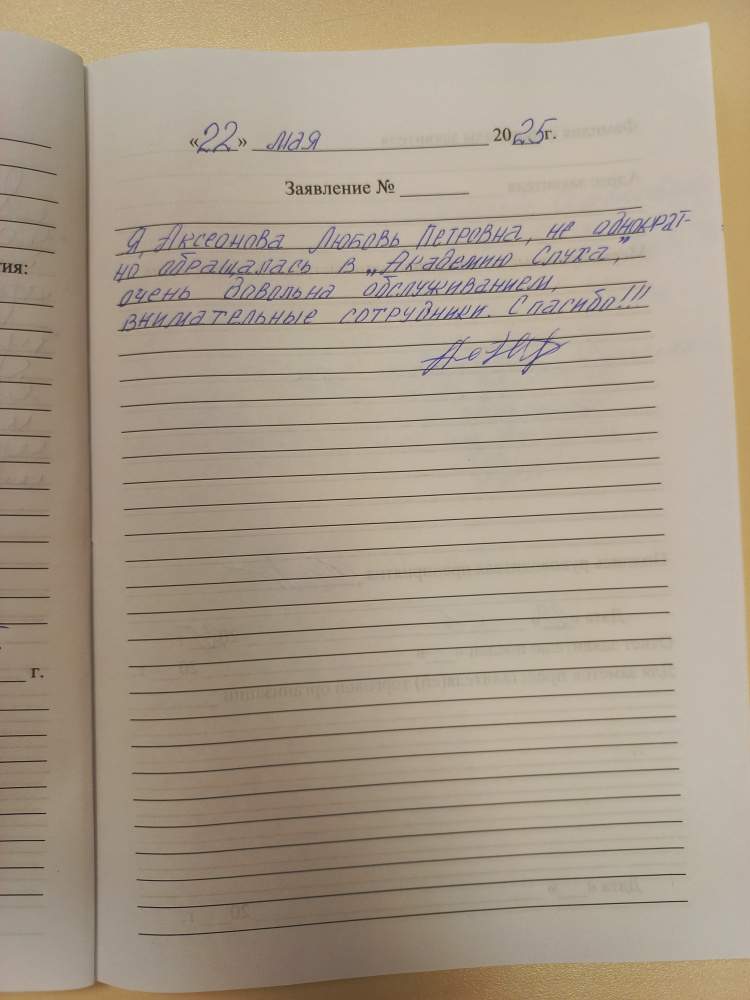 «22» мая 2025г.
Заявление №
Я, Аксеонова Любовь Петровна, не однократ-
но обращалась в „Академию Слуха",
очень довольна обслуживанием,
внимательные сотрудники. Спасибо!!!
тия:
г.